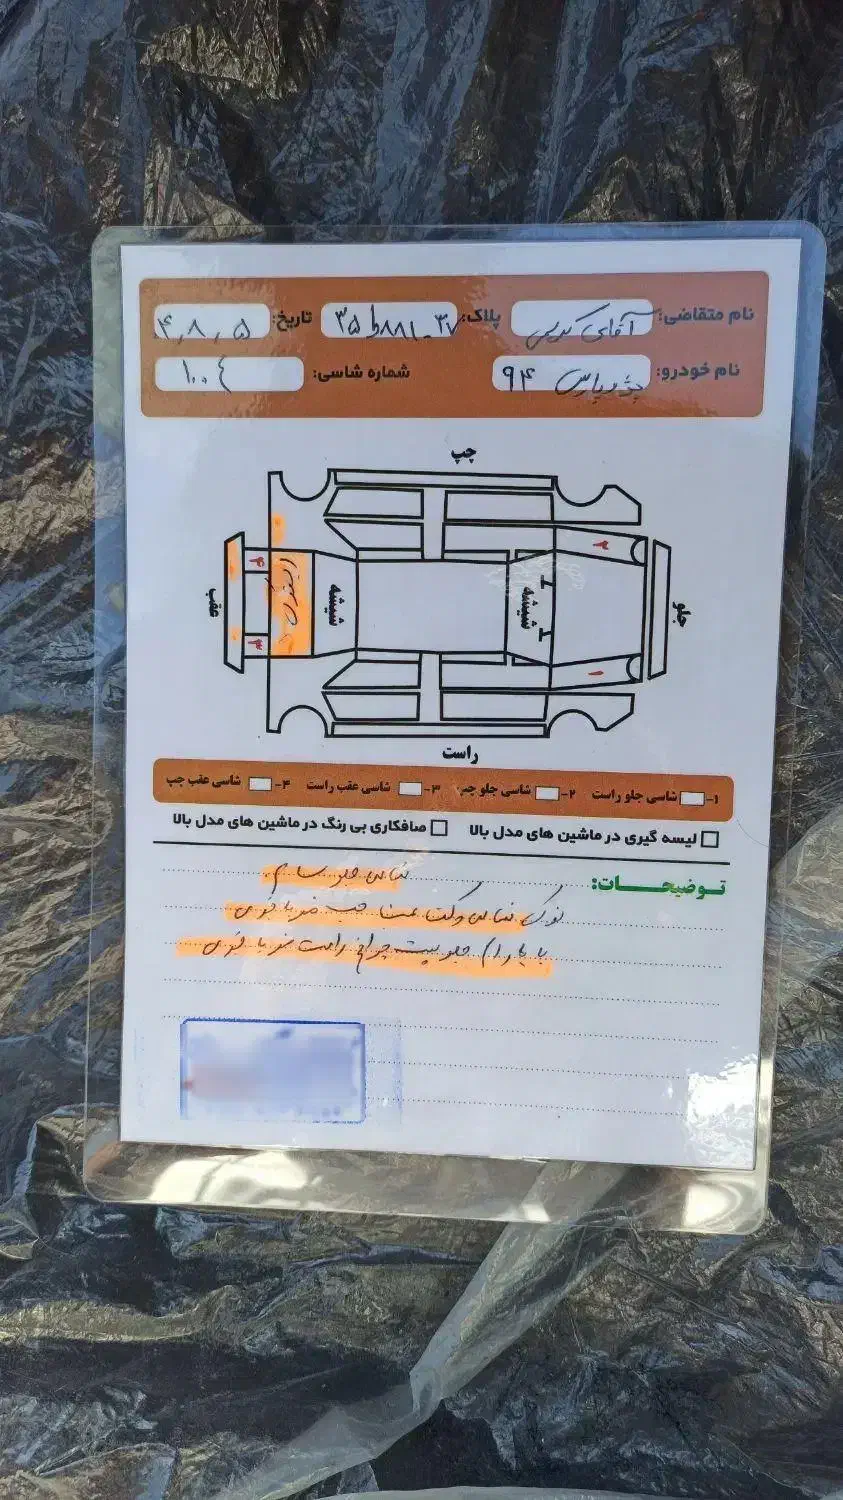 نام متقاضی: آقای پلاک: ۳۵ط۸۸۱-۳۷ تاریخ: ۴,۸,۵
نام خودرو: پژو پارس ۹۴ شماره شاسی: ۱۰۰۴
چپ
۲
۴
جلو
شیشه
شیشه
عقب
۳
۱
راست
۱- شاسی جلو راست ۲- شاسی جلو چپ ۳- شاسی عقب راست ۴- شاسی عقب چپ
لیسه گیری در ماشین های مدل بالا صافکاری بی رنگ در ماشین های مدل بالا
توضیحات: شاسی جلو سالم
نوک شاسی عقب چپ ضربه خوردگی
جلو سینه چراغ راست ضربه خوردگی